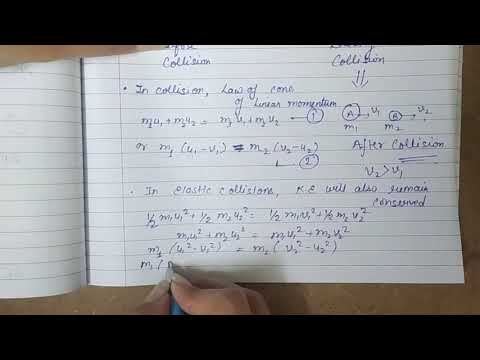 Before
Collision
During
Collision
⇓
• In collision, Law of cons
of linear momentum
m₁u₁ + m₂u₂ = m₁v₁ + m₂v₂ — ①
A → v₁ B → v₂
m₁ m₂
or m₁(u₁-v₁) = m₂(v₂-u₂)
②
After Collision
v₂ > v₁
• In elastic collisions, K.E will also remain
conserved
½ m₁u₁² + ½ m₂u₂² = ½ m₁v₁² + ½ m₂v₂²
m₁u₁² + m₂u₂² = m₁v₁² + m₂v₂²
m₁(u₁² - v₁²) = m₂(v₂² - u₂²)
m₁(